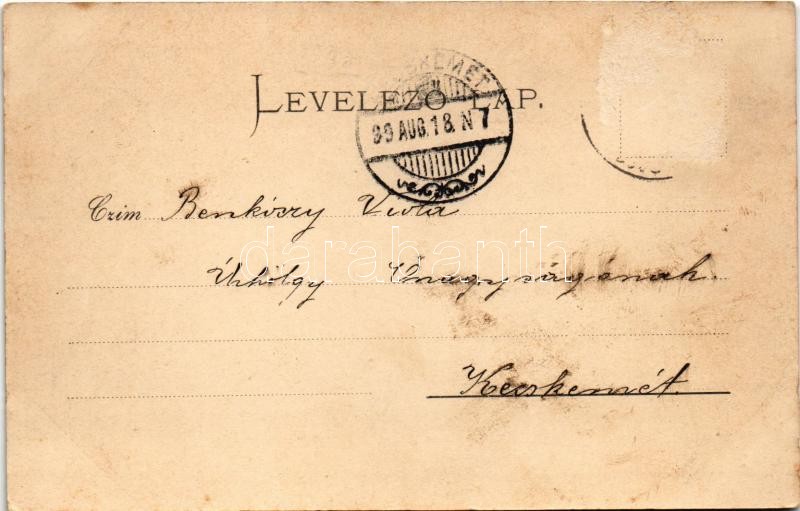 LEVELEZŐ LAP.
KECSKEMÉT
99 AUG. 18. N 7
Czim Benkóczy Viola
Úrhölgy Őnagyságának
Kecskemét.
darabanth